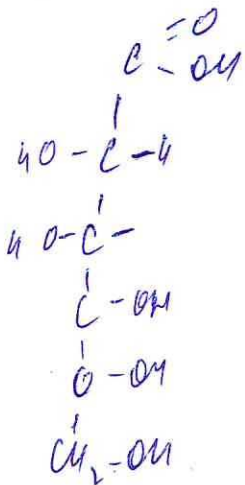 =O
C - OH
HO - C - H
HO - C -
C - OH
O - OH
CH2-OH